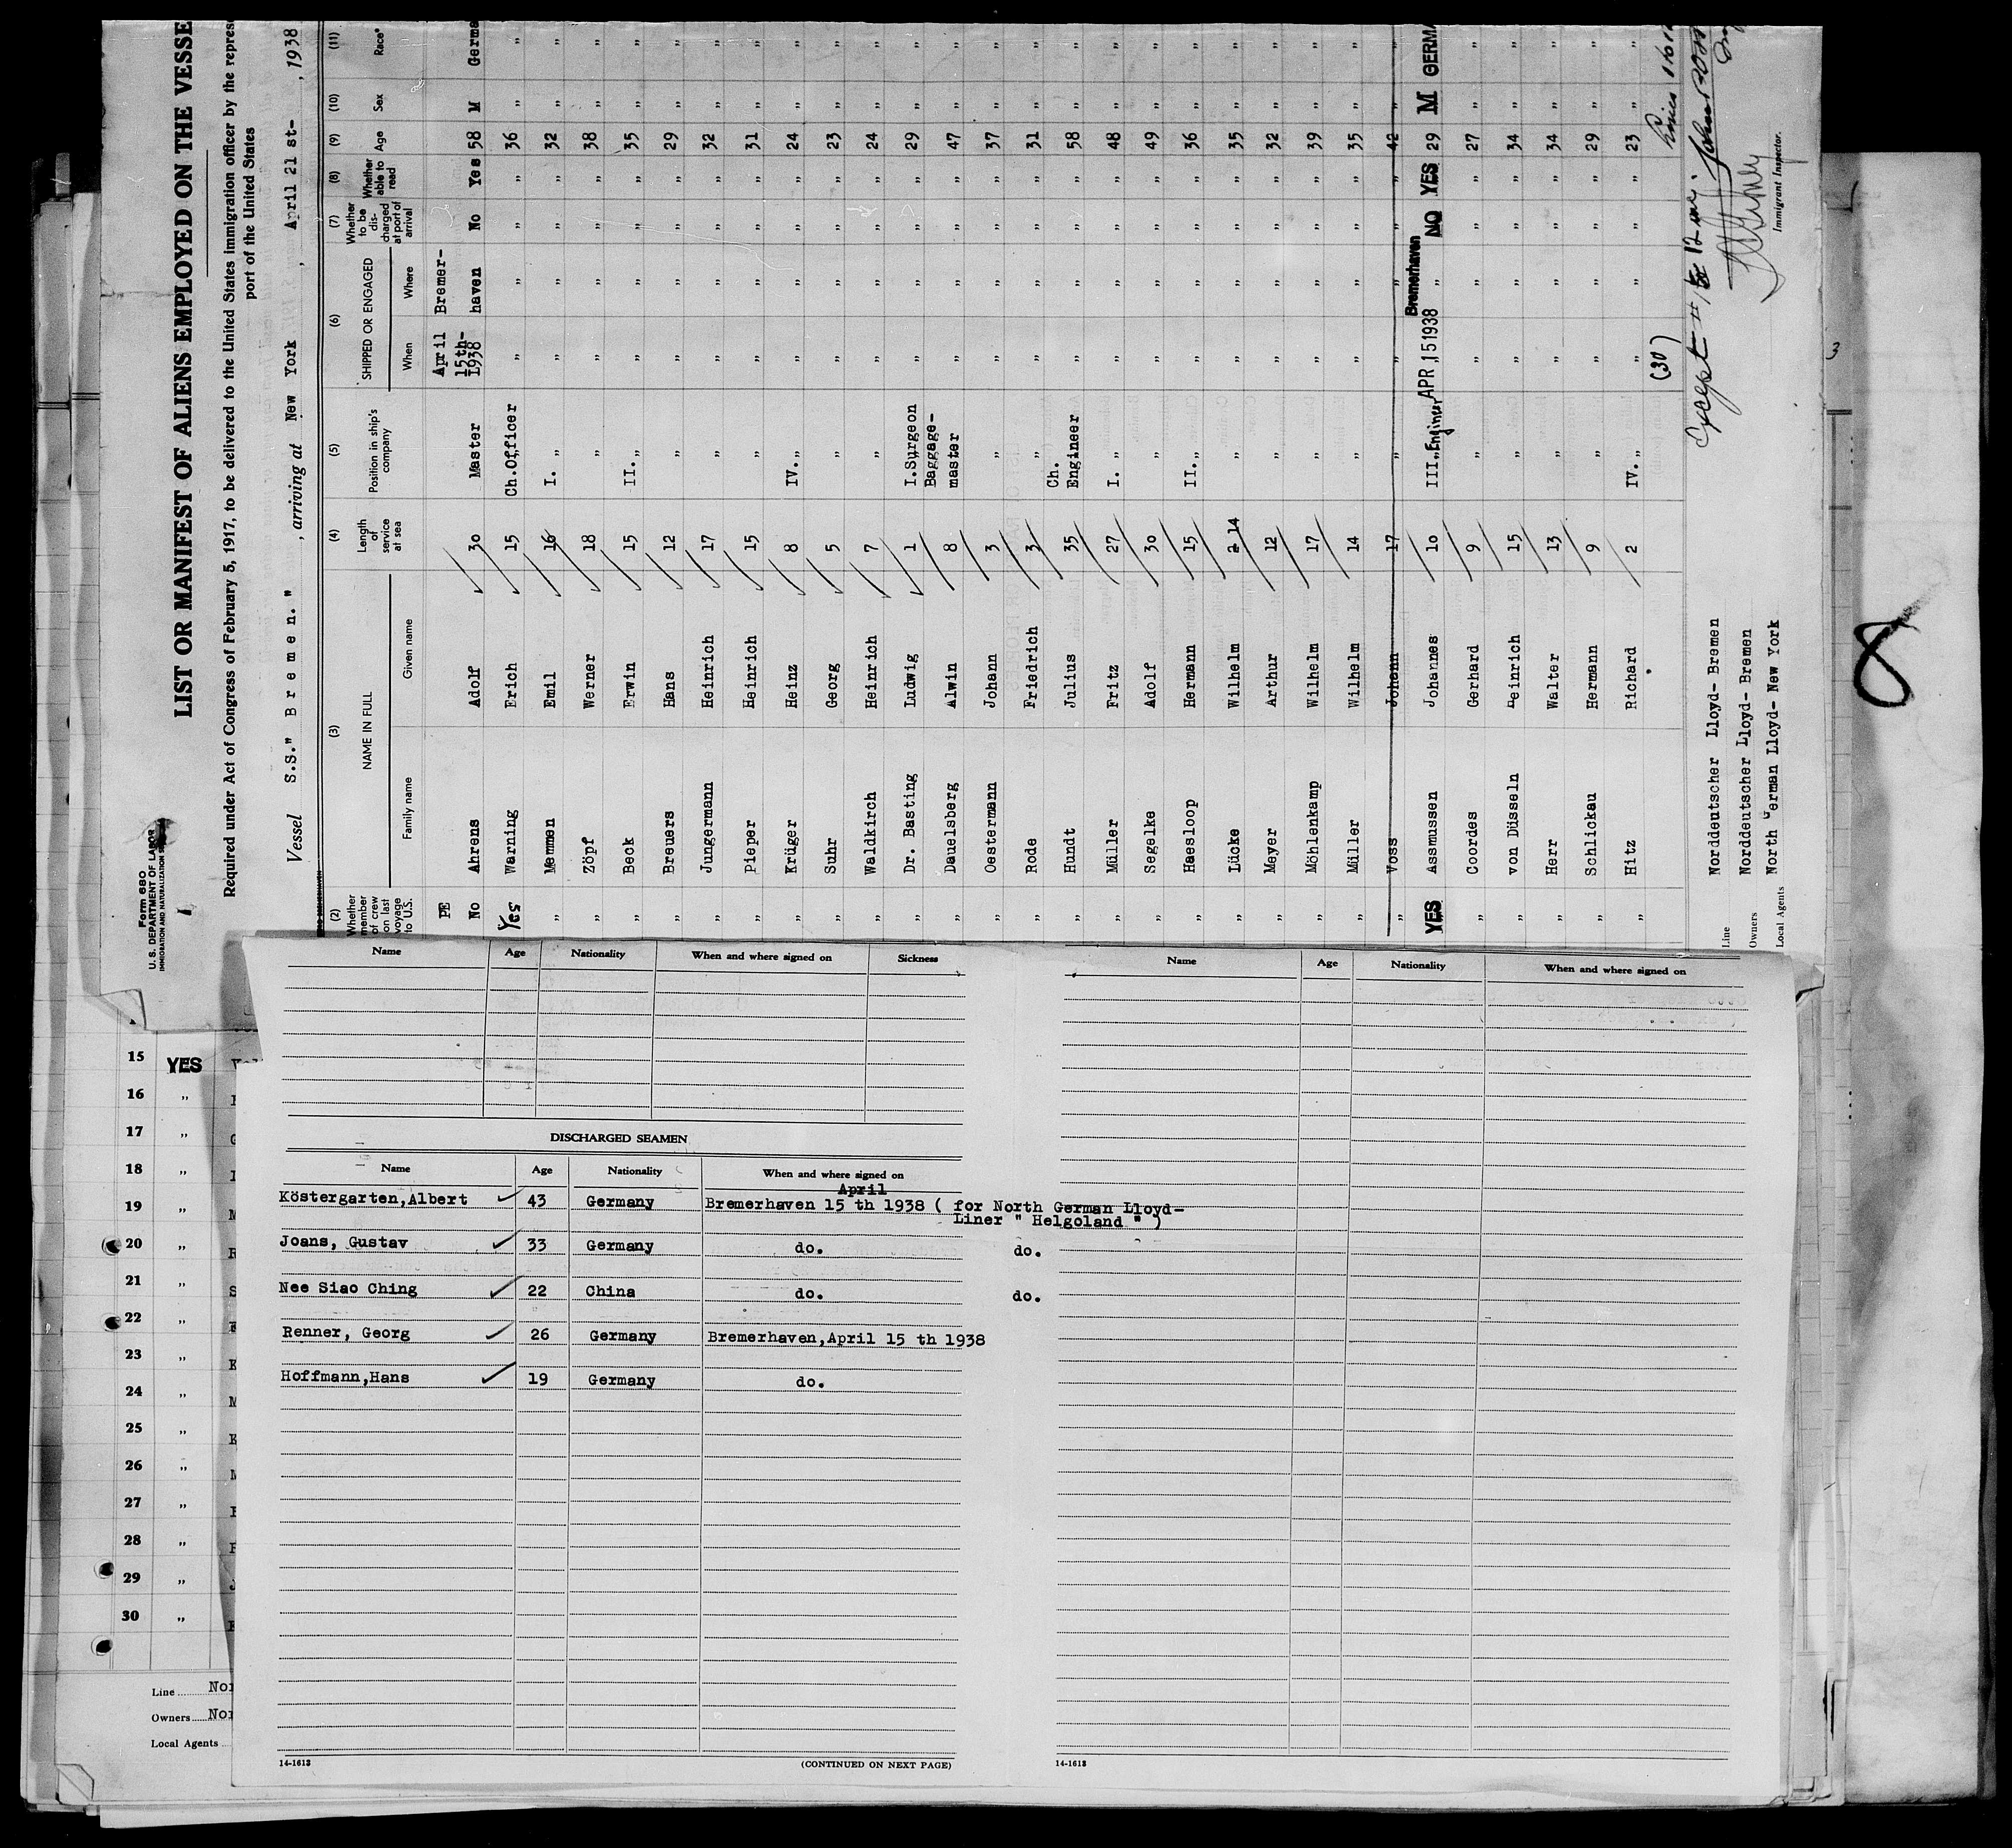 Form 680
U. S. DEPARTMENT OF LABOR
IMMIGRATION AND NATURALIZATION
LIST OR MANIFEST OF ALIENS EMPLOYED ON THE VESSE
Required under Act of Congress of February 5, 1917, to be delivered to the United States immigration officer by the repres
port of the United States
Vessel S.S." Bremen. " , arriving at New York , April 21 st- , 1938
(2) (3) (4) (5) (6) (7) (8) (9) (10) (11)
Whether member of crew on last voyage to U.S. NAME IN FULL Family name Given name Length of service at sea Position in ship's company SHIPPED OR ENGAGED When Where Whether to be discharged at port of arrival Whether able to read Age Sex Race*
PE April Bremer-
15th-
No Ahrens Adolf 30 Master 1938 haven No Yes 58 M Germa
Yes Warning Erich 15 Ch.Officer " " " " 36 " "
" Memmen Emil 16 I. " " " " " 32 " "
" Zöpf Werner 18 " " " " " 38 " "
" Beck Erwin 15 II. " " " " " 35 " "
" Breuers Hans 12 " " " " " 29 " "
" Jungermann Heinrich 17 " " " " " 32 " "
" Pieper Heinrich 15 " " " " " 31 " "
" Krüger Heinz 8 IV. " " " " " 24 " "
" Suhr Georg 5 " " " " " 23 " "
" Waldkirch Heinrich 7 " " " " " 24 " "
" Dr. Basting Ludwig 1 I.Surgeon " " " " 29 " "
" Dauelsberg Alwin 8 Baggage-master " " " " 47 " "
" Oestermann Johann 3 " " " " " 37 " "
" Rode Friedrich 3 " " " " " 31 " "
" Hundt Julius 35 Ch. Engineer " " " " 58 " "
" Müller Fritz 27 I. " " " " " 48 " "
" Segelke Adolf 30 " " " " " 49 " "
" Haesloop Hermann 15 II. " " " " " 36 " "
" Lücke Wilhelm 2 14 " " " " " 35 " "
" Meyer Arthur 12 " " " " " 32 " "
" Möhlenkamp Wilhelm 17 " " " " " 39 " "
" Müller Wilhelm 14 " " " " " 35 " "
" Voss Johann 17 " " " " " 42 " "
YES Assmussen Johannes 10 III. " Engineer APR 15 1938 Bremerhaven " NO YES 29 M GERMA
" Coordes Gerhard 9 " " " " " 27 " "
" von Düsseln Heinrich 15 " " " " " 34 " "
" Herr Walter 13 " " " " " 34 " "
" Schlickau Hermann 9 " " " " " 29 " "
" Hitz Richard 2 IV. " " " " " 23 " "
(30)
Except # 12
Line Norddeutscher Lloyd- Bremen
Owners Norddeutscher Lloyd- Bremen
Local Agents North German Lloyd- New York
Immigrant Inspector.
8
3
Name Age Nationality When and where signed on Sickness
Name Age Nationality When and where signed on
DISCHARGED SEAMEN
Name Age Nationality When and where signed on
April
Köstergarten,Albert 43 Germany Bremerhaven 15 th 1938 ( for North German Lloyd-
Liner " Helgoland " )
Joans, Gustav 33 Germany do. do.
Nee Siao Ching 22 China do. do.
Renner, Georg 26 Germany Bremerhaven,April 15 th 1938
Hoffmann,Hans 19 Germany do.
14-1613 (CONTINUED ON NEXT PAGE) 14-1613
15 YES
16 "
17 "
18 "
19 "
20 "
21 "
22 "
23 "
24 "
25 "
26 "
27 "
28 "
29 "
30 "
Line Nor
Owners Nor
Local Agents